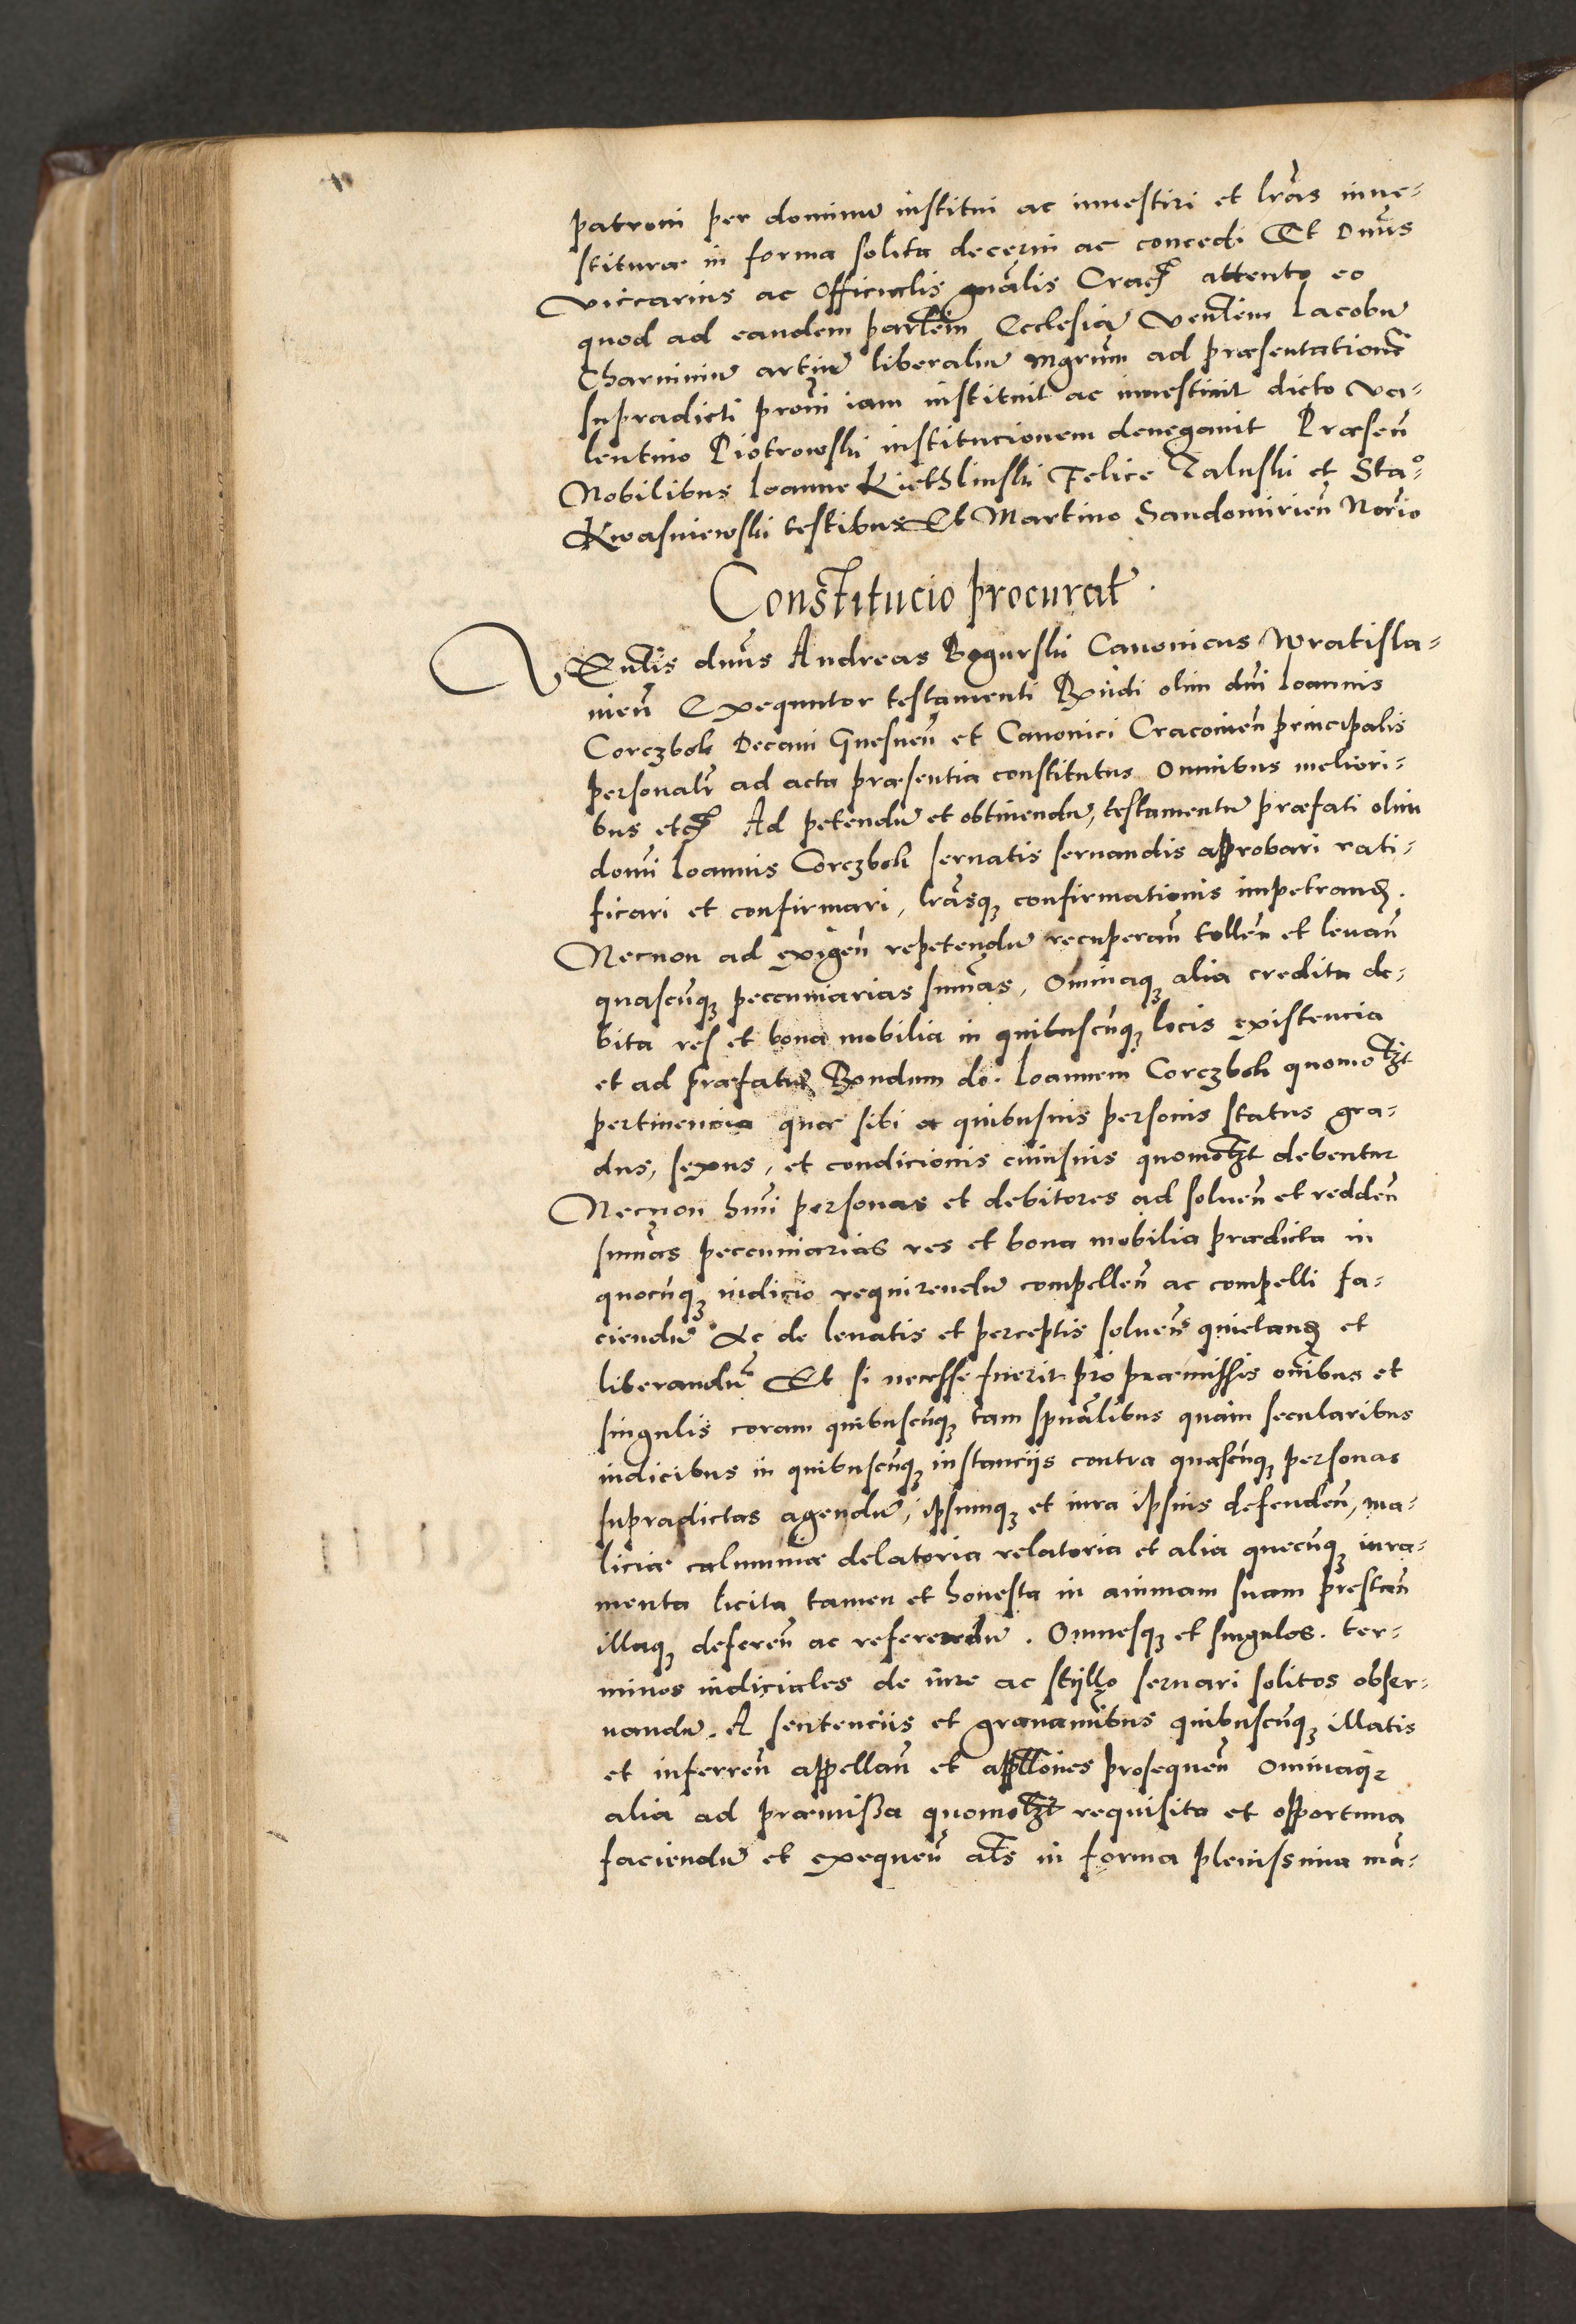 patroni per dominum institui ac inuestiri et lr̃as inue-
stituræ in forma solita decerni ac concedi Et Dnũs
Viccarius ac Officialis gnãlis Crac̃ attento eo
quod ad eandem parlẽm Ecclesiã Venlẽm Iacobũ
Charninũ artiũ liberaliũ mgrũm ad præsentationẽ
supradicti prõni iam instituit ac inuestiuit dicto Va-
lentino Piotrowski institucionem denegauit Præseñ
Nobilibus Ioanne Kiethlinski Felice Zaluski et Sta°
Kwasniewski testibus Et Martino Sandomirieñ Norĩo
Constitucio procurat̃.
VEnlĩs dnũs Andreas Bogurski Canonicus Wratisla-
uieñ Exequutor testamenti Rñdi olim dñi Ioannis
Corczbok Decani Gnesneñ et Canonici Cracouieñ principalis
personalr̃ ad acta præsentia constitutus Omnibus meliori-
bus etc̃ Ad petendũ et obtinendũ, testamentũ præfati olim
domĩ Ioannis Corczbok seruatis seruandis approbari rati-
ficari et confirmari, lr̃asq; confirmationis impetrand̃.
Necnon ad exigeñ repetendũ recuperañ tolleñ et leuañ
quascũq; peccuniarias sum̃as, Omniaq; alia credita de-
bita res et bona mobilia in quibuscũq; locis existencia
et ad præfatũ Rndum do. Ioannem Corczbok quomolt̃
pertinencia quæ sibi a quibusuis personis status gra-
dus, sexus, et condicionis cuiusuis quomolt̃ debentur
Necnon hm̃i personas et debitores ad solueñ et reddeñ
sum̃as peccuniarias res et bona mobilia prædicta in
quocũq; iudicio requirendũ compelleñ ac compelli fa-
ciendũ Ac de leuatis et perceptis solueñs quietand̃ et
liberandũ Et si necesse fuerit pro præmissis om̃ibus et
singulis coram quibuscũq; tam spuãlibus quàm secularibus
iudicibus in quibuscũq; instancijs contra quascũq; personas
supradictas agendũ, ipsumq; et iura ipsius defendeñ, ma-
liciæ calumniæ delatoria relatoria et alia quecũq; iura-
menta licita tamen et honesta in animam suam prestañ
illaq; defereñ ac referendũ. Omnesq; et singulos ter-
minos iudiciales de iure ac styllo seruari solitos obser-
uandũ. A sentenciis et grauamĩbus quibuscũq; illatis
et inferreñ appellañ et appll̃ones prosequeñ Omniaq;
alia ad præmissa quomolt̃ requisita et opportuna
faciendũ et exequeñ alt̃s in forma plenissima mã-